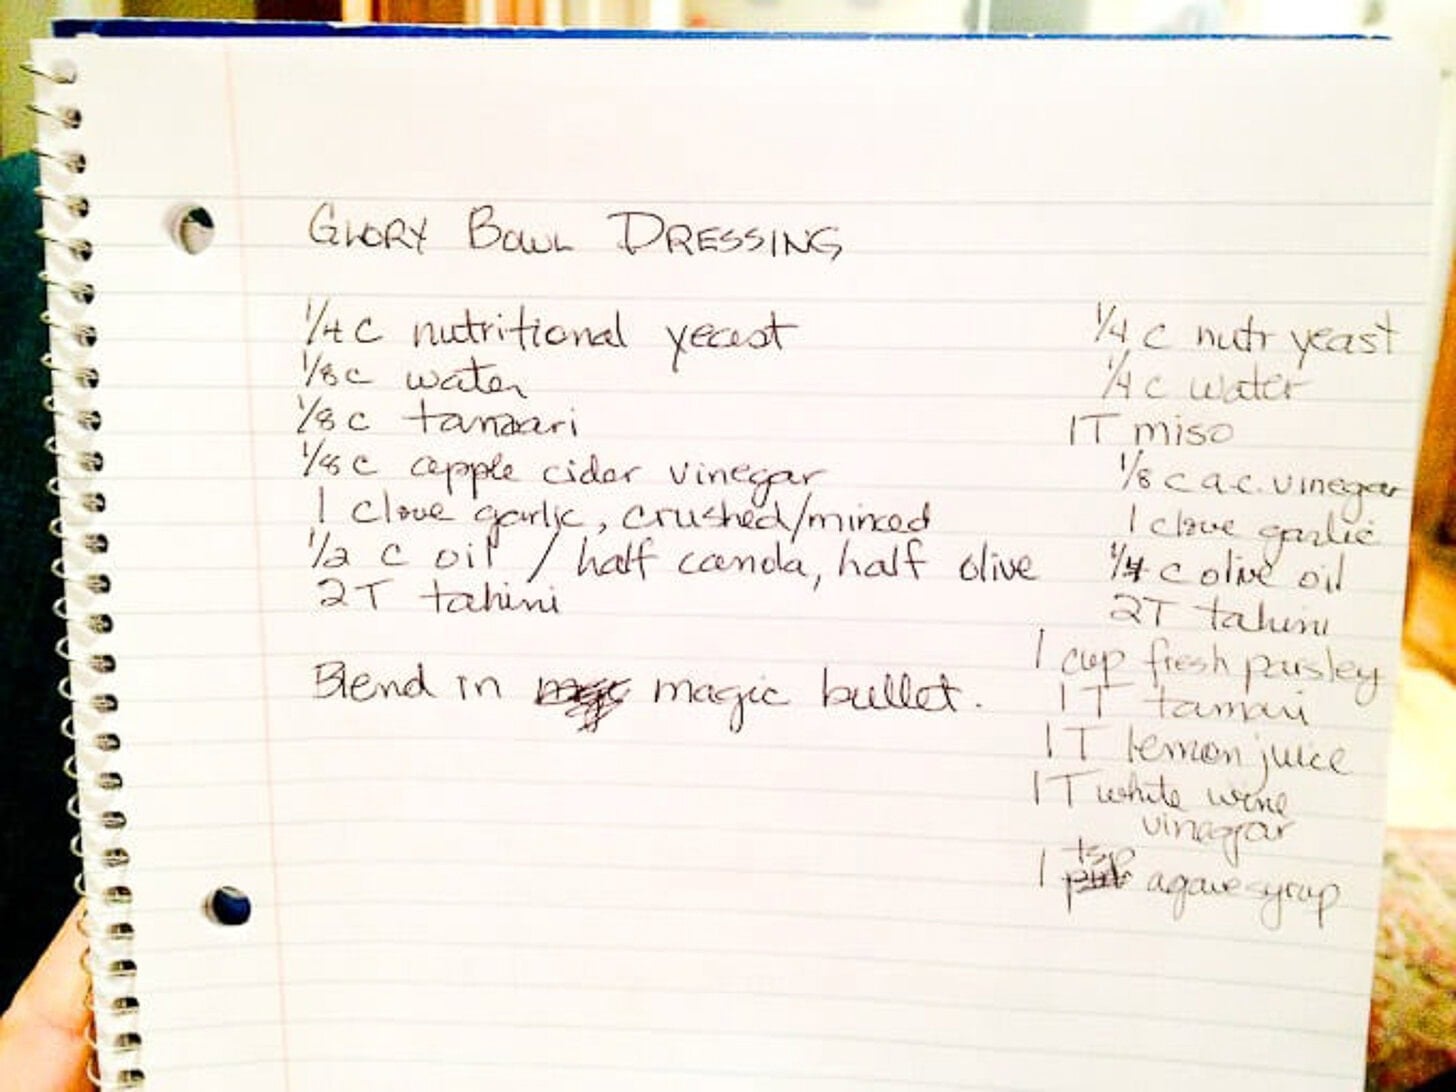 GLORY BOWL DRESSING
1/4 c nutritional yeast
1/8 c water
1/8 c tamari
1/8 c apple cider vinegar
1 clove garlic, crushed/minced
1/2 c oil / half canola, half olive
2T tahini
Blend in magic bullet.
1/4 c nutr yeast
1/4 c water
1T miso
1/8 c a.c. vinegar
1 clove garlic
1/4 c olive oil
2T tahini
1 cup fresh parsley
1 T tamari
1 T lemon juice
1 T white wine
vinegar
1 tsp agave syrup